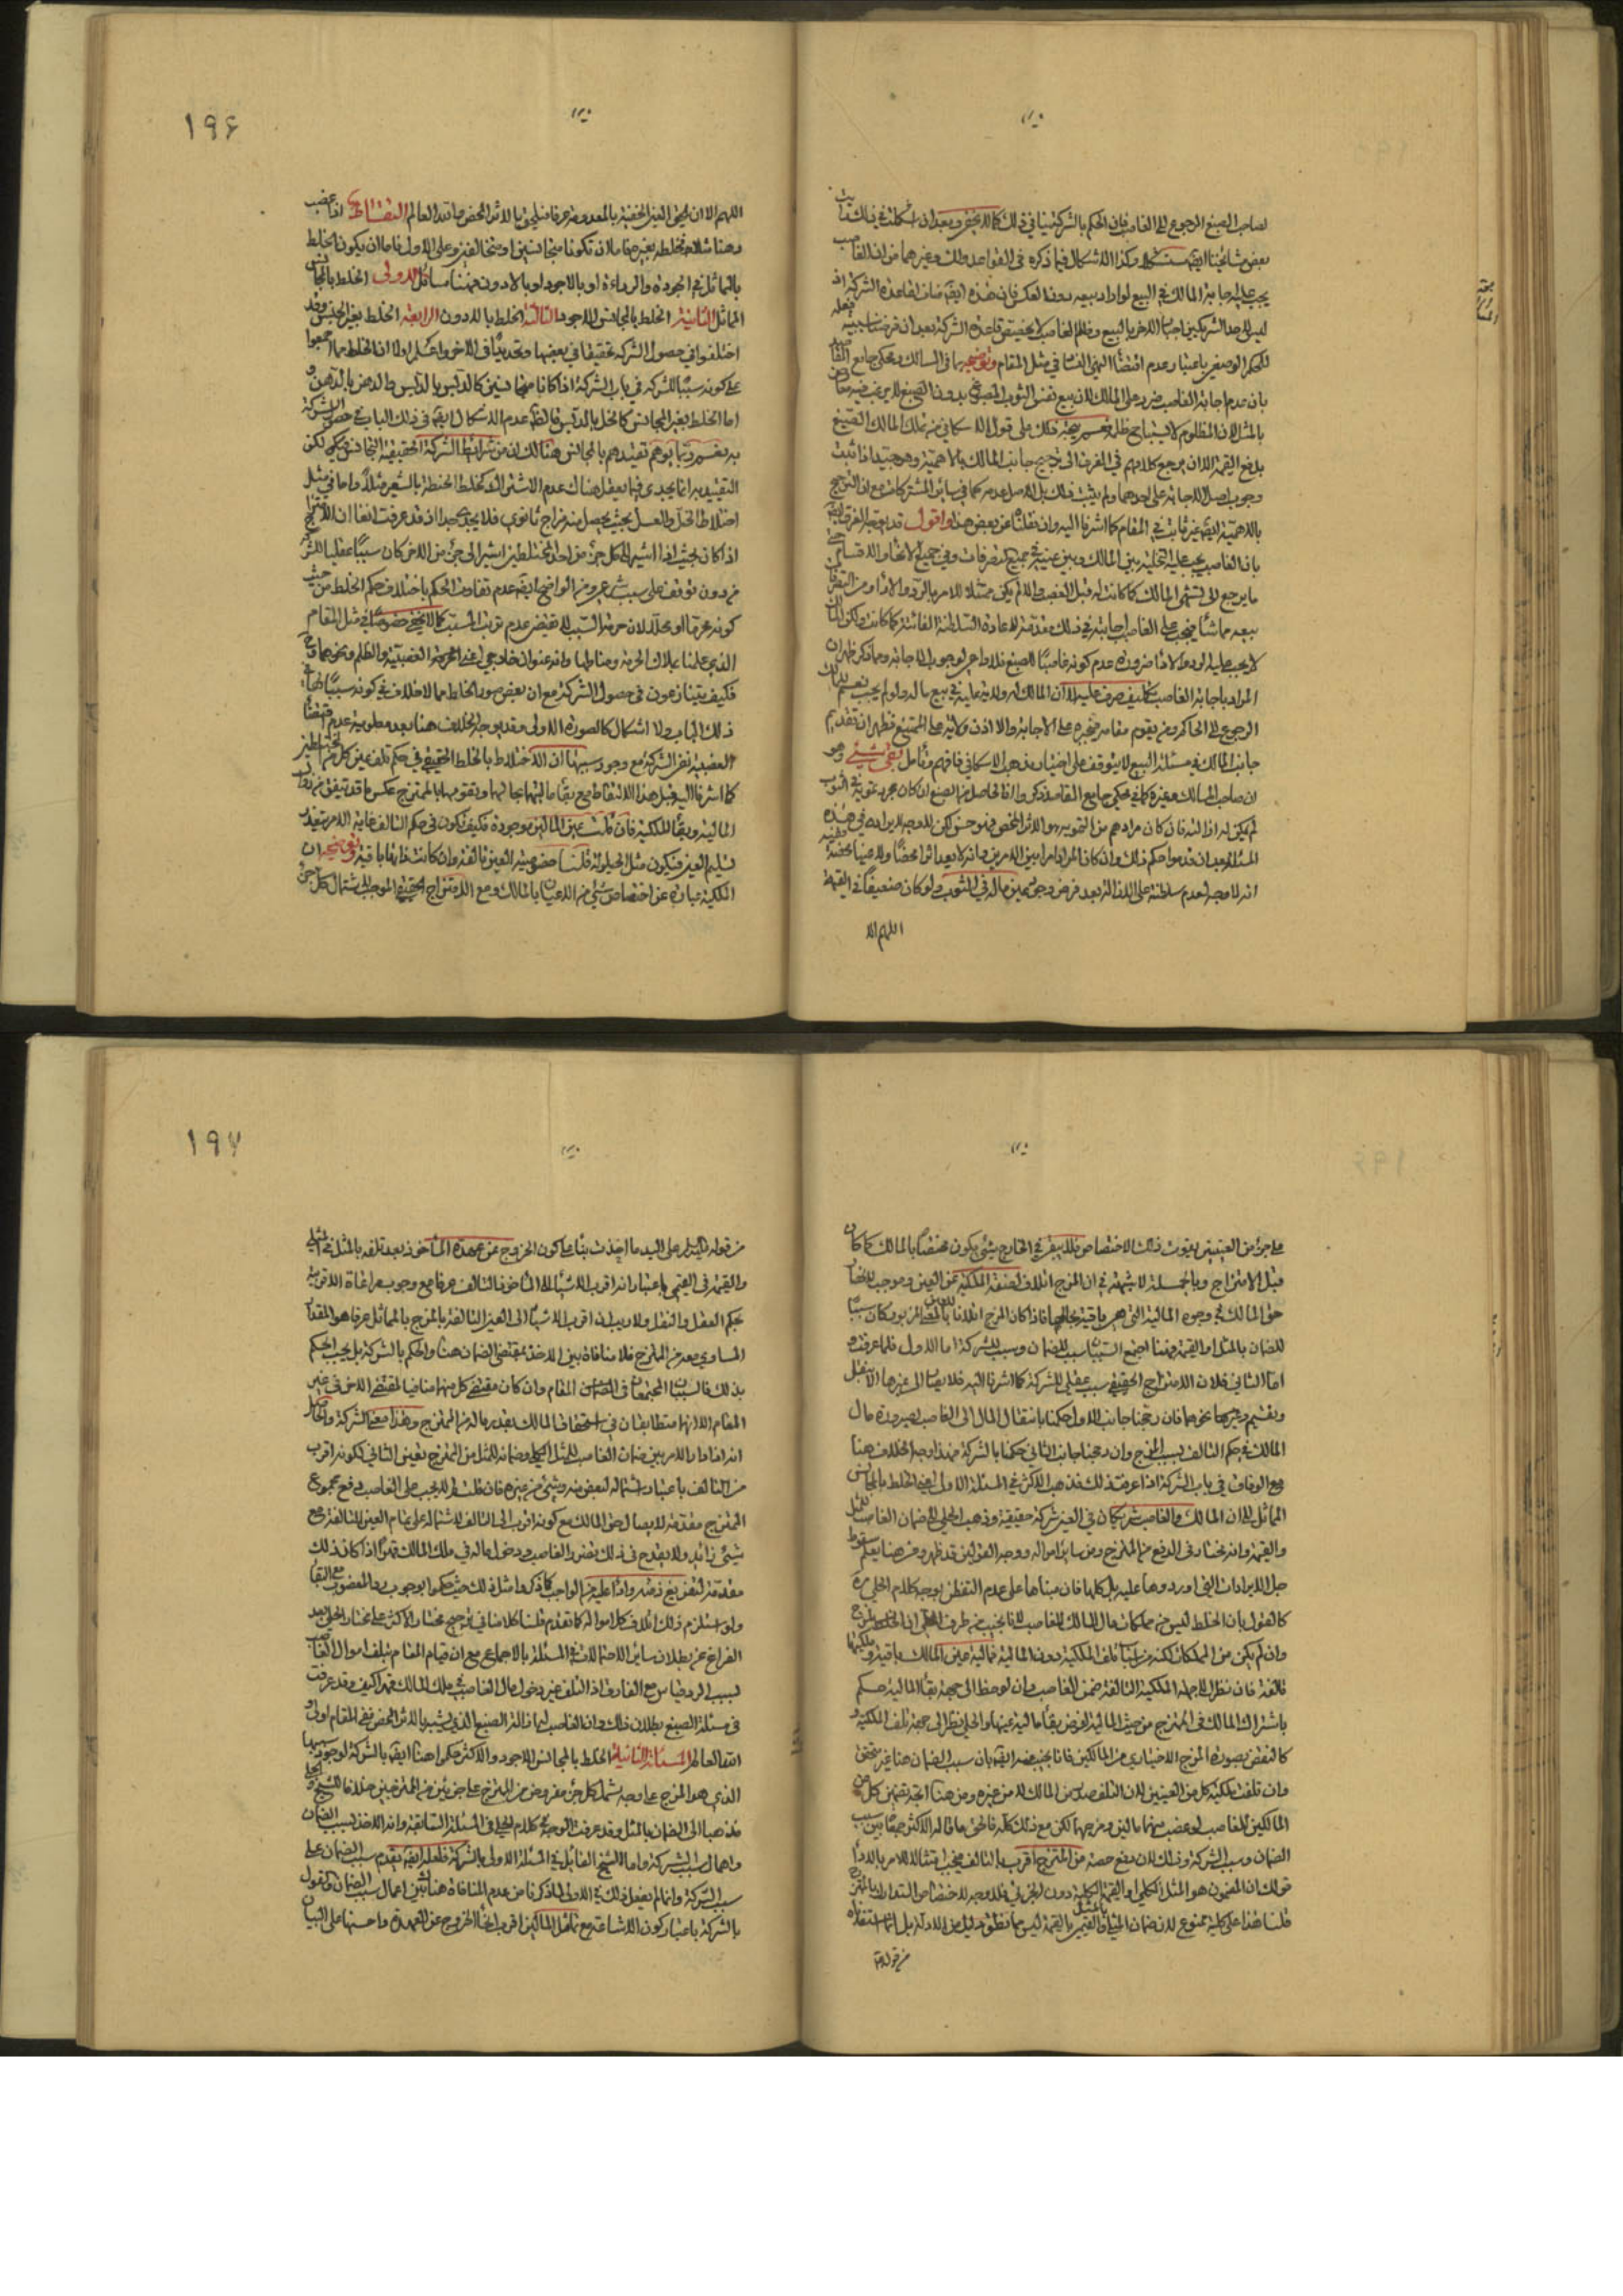 لصاحب الصبغ الرجوع الى الغاصب فان الحكم بالشركة ينافي ذلك كما لا يخفى وبعد ان
بعض مشايخنا ايضا وكذا الاشكال فيما ذكره في القواعد وغيرهما من ان الغاصب
يجب عليه اجابة المالك في البيع لو اراد بيعه دون العكس فان هذه ايضا قاعدة الشركة اذ
ليس لاحد الشريكين اجبار الاخر بالبيع وظلم الغاصب لا يخصص قاعدة الشركة بعد ان فرضنا سببية فعله
للحكم الوضعي باعتبار وعدم اقتضاء النهي الفساد في مثل المقام وتوضيحه ما في المسالك ومحكي جامع المقاصد
بان عدم اجابة الغاصب ضرر على المالك لان بيع نفس الثوب بدون الصبغ
بالمثل لان المظلوم لا يستباح ظلمه على قول الاسكافي من تملك المالك الصبغ
بدفع القيمة الا ان مرجع كلامهم في الفرق الى ترجيح جانب المالك بالاهمية وهو جيد اذا ثبت
وجوب اصل الاجابة على احدهما ولم يثبت ذلك بل الاصل عدمه كما في سائر المشتركات مع ان الترجيح
بالاهمية ايضا غير ثابت في المقام كما اشرنا اليه وان نقلناه عن بعض هذا واقول قد يوجه الفرق
بان الغاصب يجب عليه التخلية بين المالك وبين عينه في جميع التصرفات وفي جميع الانحاء والاقسام حتى
ما يرجع الى تشهي المالك كما كانت له قبل الغصب والا لم يكن ممتثلا للامر بالرد والاداء ومن التصرفات
بيعه مما شاء فيجب على الغاصب اجابته في ذلك مقدمة لاعادة السلطنة الفائتة كما كانت ولكن المالك
لا يجب عليه الرد والاداء ضرورة عدم كونه غاصبا للصبغ فلا داعي لوجوب الاجابة ومما ذكر ظهر ان
المراد باجابة الغاصب تكليف صرف عليه لا ان المالك له ولاية عليه في بيع ماله ولو لم يجب نعم للمالك
الرجوع الى الحاكم ومن يقوم مقامه فيجبره على الاجابة والا اذن ولاية على الممتنع فظهر ان تقديم
جانب المالك في مسئلة البيع لا يتوقف على اختيار مذهب الاسكافي فافهم وتأمل بقي شيء وهو
ان صاحب المسالك وغيره كما في محكي جامع المقاصد ذكروا ان الحاصل من الصبغ ان كان مجرد تمويه في الثوب
لم يكن له ازالته فان كان مرادهم من التمويه هو الاثر المحض فهو حسن لكن لا وجه لايراده في هذه
المسئلة بعد ان قدموا حكم ذلك وان كان المراد امرا بين الامرين وانه لا يعد اثرا محضا ولا عينا محضة ففيه
انه لا وجه لعدم سلطنته على الازالة بعد فرض وجود عين ماله في الثوب ولو كان ضعيفا في القيمة
اللهم الا
١٩۶
اللهم الا ان يلحق العين الخفيفة بالمعدومة عرفا فيلحق بالاثر المحض والله العالم التقاط اذا غصب
دهنا مثلا فخلطه بغيره فاما ان تكونا متجانسين او متخالفين وعلى الاول فاما ان يكون الخلط
بالمماثل في الجودة والرداءة او بالاجود او بالادون فهنا مسائل الاولى الخلط بالمجانس
المماثل الثانية الخلط بالمجانس الاجود الثالثة الخلط بالادون الرابعة الخلط بغير الجنس وقد
اختلفوا في حصول الشركة تحقيقا في بعضها وتقديرا في الاخر واعلم اولا ان الخلط مما اجمعوا
على كونه سببا للشركة في باب الشركة اذا كانا متجانسين كالدبس بالدبس والدهن بالدهن و
اما الخلط بغير المجانس كالخل بالدبس فالظاهر عدم الاشكال ايضا في ذلك الباب في حصول الشركة
به نعم ربما يوهم تقييدهم بالمجانس هنالك ان من شرائط الشركة الحقيقية التجانس لكن
التقييد به انما يجدي فيما يعقل هناك عدم الاشتراك كخلط الحنطة بالشعير مثلا واما في مثل
اختلاط الخل والعسل بحيث يحصل منه مزاج ثانوي فلا يجدي جدا اذ قد عرفت انفا ان الامتزاج
اذا كان بحيث اذا اشير الى كل جزء من احد المختلطين اشير الى جزء من الاخر كان سببا عقليا للشركة
من دون توقف على سبب شرعي ومن الواضح ايضا عدم تفاوت الحكم باختلاف حكم الخلط من حيث
كونه محرما او محللا لان حرمة السبب لا تقتضي عدم ترتب المسبب كما لا يخفى خصوصا في مثل المقام
الذي علمنا بملاك الحرمة ومناطها وانه عنوان خارجي اعني الحرمة الغصبية والظلم ونحوهما و
فكيف يتنازعون في حصول الشركة مع ان بعض صور الخلط مما لا خلاف في كونه سببا لها في
ذلك الباب ولا اشكال كالصورة الاولى وقد يوجه الخلاف هنا بعد معلومية عدم اقتضاء
الغصبية نفي الشركة مع وجود سببها ان الاختلاط بالخلط الحقيقي في حكم تلف عين كل من المختلطين
كما اشرنا اليه قبل هذا الالتقاط مع بقاء ماليتهما بحالها وتقومها بالممتزج عكس ما قد يتفق من زوال
المالية وبقاء الملكية فان قلت عين المالين موجودة فكيف تكون في حكم التالف غاية الامر تعذر
تسليم العين فيكون مثل الحيلولة قلنا خصوصية العين تالفة وان كانت ذاتها باقية وتوضيحه ان
الملكية عبارة عن اختصاص شيء من الاعيان بالمالك ومع الامتزاج الحقيقي الموجب لاشتمال كل جزء
على جزء من العينين يفوت ذلك الاختصاص فلا يبقى في الخارج شيء يكون مختصا بالمالك كما كان
قبل الامتزاج وبالجملة لا شبهة في ان المزج اتلاف لصفة الملكية عن العين وموجب
حق المالك في وجوه المالية التي هي باقية بحالها فاذا كان المزج اتلافا بالمعنى المزبور كان سببا
للضمان بالمثل او القيمة فهنا اجتمع السببان سبب للضمان وسبب للشركة اما الاول فلما عرفت و
اما الثاني فلان الامتزاج الحقيقي سبب عقلي للشركة كما اشرنا اليه فلا يصار الى غيرها الا بنقل
وتقسيم ونحوهما فان رجحنا جانب الاول حكمنا بانتقال المال الى الغاصب لصيرورة مال
المالك في حكم التالف بسبب المزج وان رجحنا جانب الثاني حكمنا بالشركة فهذا وجه الخلاف هنا
مع الوفاق في باب الشركة اذا عرفت ذلك فذهب الاكثر في المسئلة الاولى اعني الخلط بالمجانس
المماثل الى ان المالك والغاصب شريكان في العين شركة حقيقية وذهب الحلي الى ضمان الغاصب المثل
والقيمة وانه يختار في الدفع من الممتزج ومن سائر امواله ووجه القولين قد ظهر ومن هنا يعلم سقوط
جل الايرادات التي اوردوها عليه بل كلها فان مبناها على عدم التفطن بوجه كلام الحلي مرة
كالقول بان الخلط ليس من مملكات مال المالك للغاصب لانا نجيب من طرف الحلي ان الخلط
وان لم يكن من المملكات لكنه من اسباب تلف الملكية دون المالية فمالية عين المالك باقية وملكيتها
تالفة فان نظرنا الى جهة الملكية التالفة ضمن الغاصب وان لوحظ الى جهة بقاء المالية حكم
باشتراك المالك في الممتزج من حيث المالية لفرض بقاء مالية عينه والحلي نظر الى جهة تلف الملكية و
كالنقض بصورة المزج الاختياري من المالكين فانا نجيب عنه ايضا بان سبب الضمان هنا غير متحقق
وان تلفت ملكية كل من العينين لان التلف صدر من المالك لا من غيره ومن هنا اتجه تضمين كل من
المالكين للغاصب لو غصب منهما مالين ومزجهما لكن مع ذلك كله فالحق ما قاله الاكثر جمعا بين سبب
الضمان وسبب الشركة وذلك لان دفع حصة من الممتزج اقرب بالتالف فيجب امتثالا للامر بالاداء
قولك ان المضمون هو المثل الكلي او القيمة الكلية دون الجزئي فلا وجه لاختصاص التدارك بالممتزج
قلنا هذا على كلية ممنوع لان ضمان المثلي بالمثل والقيمي بالقيمة ليس مما نطق به دليل من الادلة بل انما استفدناه
من قوله
١٩٧
من قوله عليه السلام على اليد ما اخذت بناء على كون الخروج عن عهدة المأخوذ بعد تلفه بالمثل في المثلي
والقيمة في القيمي باعتبار انه اقرب الاشياء الى المأخوذ التالف عرفا مع وجوب مراعاة الاقربية
بحكم العقل والنقل ولا ريب ان اقرب الاشياء الى العين التالفة بالمزج بالمماثل عرفا هو المقدار
المساوي معه من الممتزج فلا منافاة بين الاخذ بمقتضى الضمان هنا والحكم بالشركة بل يجب الحكم
بذلك فالسببان المجتمعان في المقام وان كان مقتضى كل منهما منافيا لمقتضى الاخر في غير
المقام الا انهما متطابقان في استحقاق المالك بقدر ماله من الممتزج وهذا معنى الشركة والحاصل
انه اذا دار الامر بين ضمان الغاصب للمثل الكلي وضمانه للمثل من الممتزج تعين الثاني لكونه اقرب
من التالف باعتبار اشتماله لبعض منه وشيء من غيره فان قلت فلا يجب على الغاصب دفع مجموع
الممتزج مقدمة لايصال حق المالك مع كونه اقرب الى التالف لاشتماله على تمام العين التالفة مع
شيء زائد ولا يقدح في ذلك تضرر الغاصب ودخول ماله في ملك المالك قهرا اذا كان ذلك
مقدمة لتفريغ ذمته واداء عليه من الواجب كما ذكروا مثل ذلك حيث حكموا بوجوب رد المغصوب مع البقاء
ولو استلزم ذلك اتلاف كل امواله كما تقدم قلنا كلامنا في ترجيح مختار الاكثر على مختار الحلي بعد
الفراغ عن بطلان سائر الاحتمالات في المسئلة بالاجماع مع ان قيام المقام بتلف اموال الغاصب
بسبب الرد قياس مع الفارق اذ التلف غير دخول مال الغاصب في ملك المالك قهرا كيف وقد عرفت
في مسئلة الصبغ بطلان ذلك وان الغاصب له ازالة الصبغ الذي يشبه بالاثر المحض ففي المقام اولى و
الله العالم المسئلة الثانية الخلط بالمجانس الاجود والاكثر حكموا هنا ايضا بالشركة لوجود سببها
الذي هو المزج على وجه يشمل كل جزء مفروض من الممتزج على جزئين من الممتزجين خلافا للشيخ و
فذهبا الى الضمان بالمثل وقد عرفت الوجه في كلام الحلي في المسئلة السابقة وانه الاخذ بسبب الضمان
واهمال سبب الشركة واما الشيخ القائل في المسئلة الاولى بالشركة فلعله ايضا تقديم سبب الضمان على
سبب الشركة وانما لم يفعل ذلك في الاولى لما ذكرنا من عدم المنافاة هناك بين اعمال سبب الضمان والقول
بالشركة باعتبار كون الاشاعة مع تماثل المالين اقرب انحاء الخروج عن العهدة واحسنها على البيان